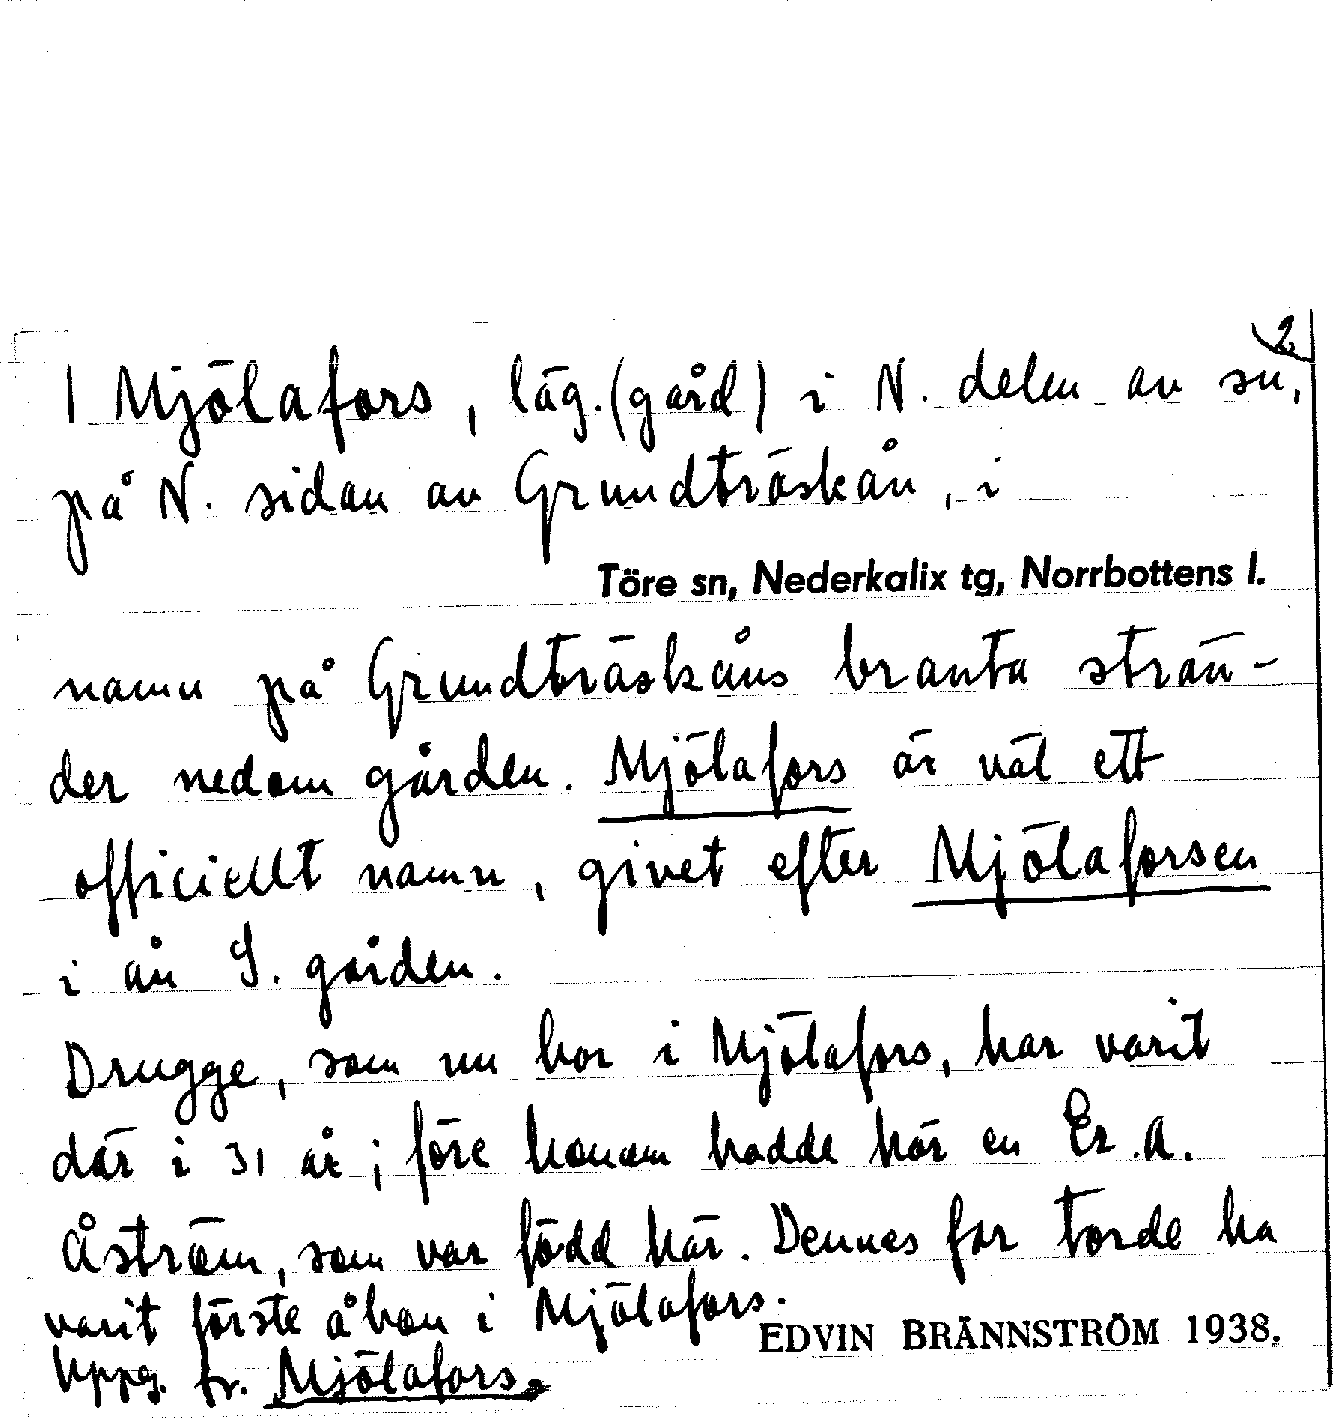 2.
1 Mjölafors, läg. (gård) i N. delen av sn,
på N. sidan av Grundträskån, i
Töre sn, Nederkalix tg, Norrbottens l.
namn på Grundträskåns branta strän-
der nedom gården. Mjölafors är väl ett
officiellt namn, givet efter Mjölaforsen
i ån S. gården.
Drugge, som nu bor i Mjölafors, har varit
där i 31 år; före honom bodde här en Er. A.
Åström, som var född här. Dennes far torde ha
varit förste åbon i Mjölafors.
EDVIN BRÄNNSTRÖM 1938.
Uppg. fr. Mjölafors.